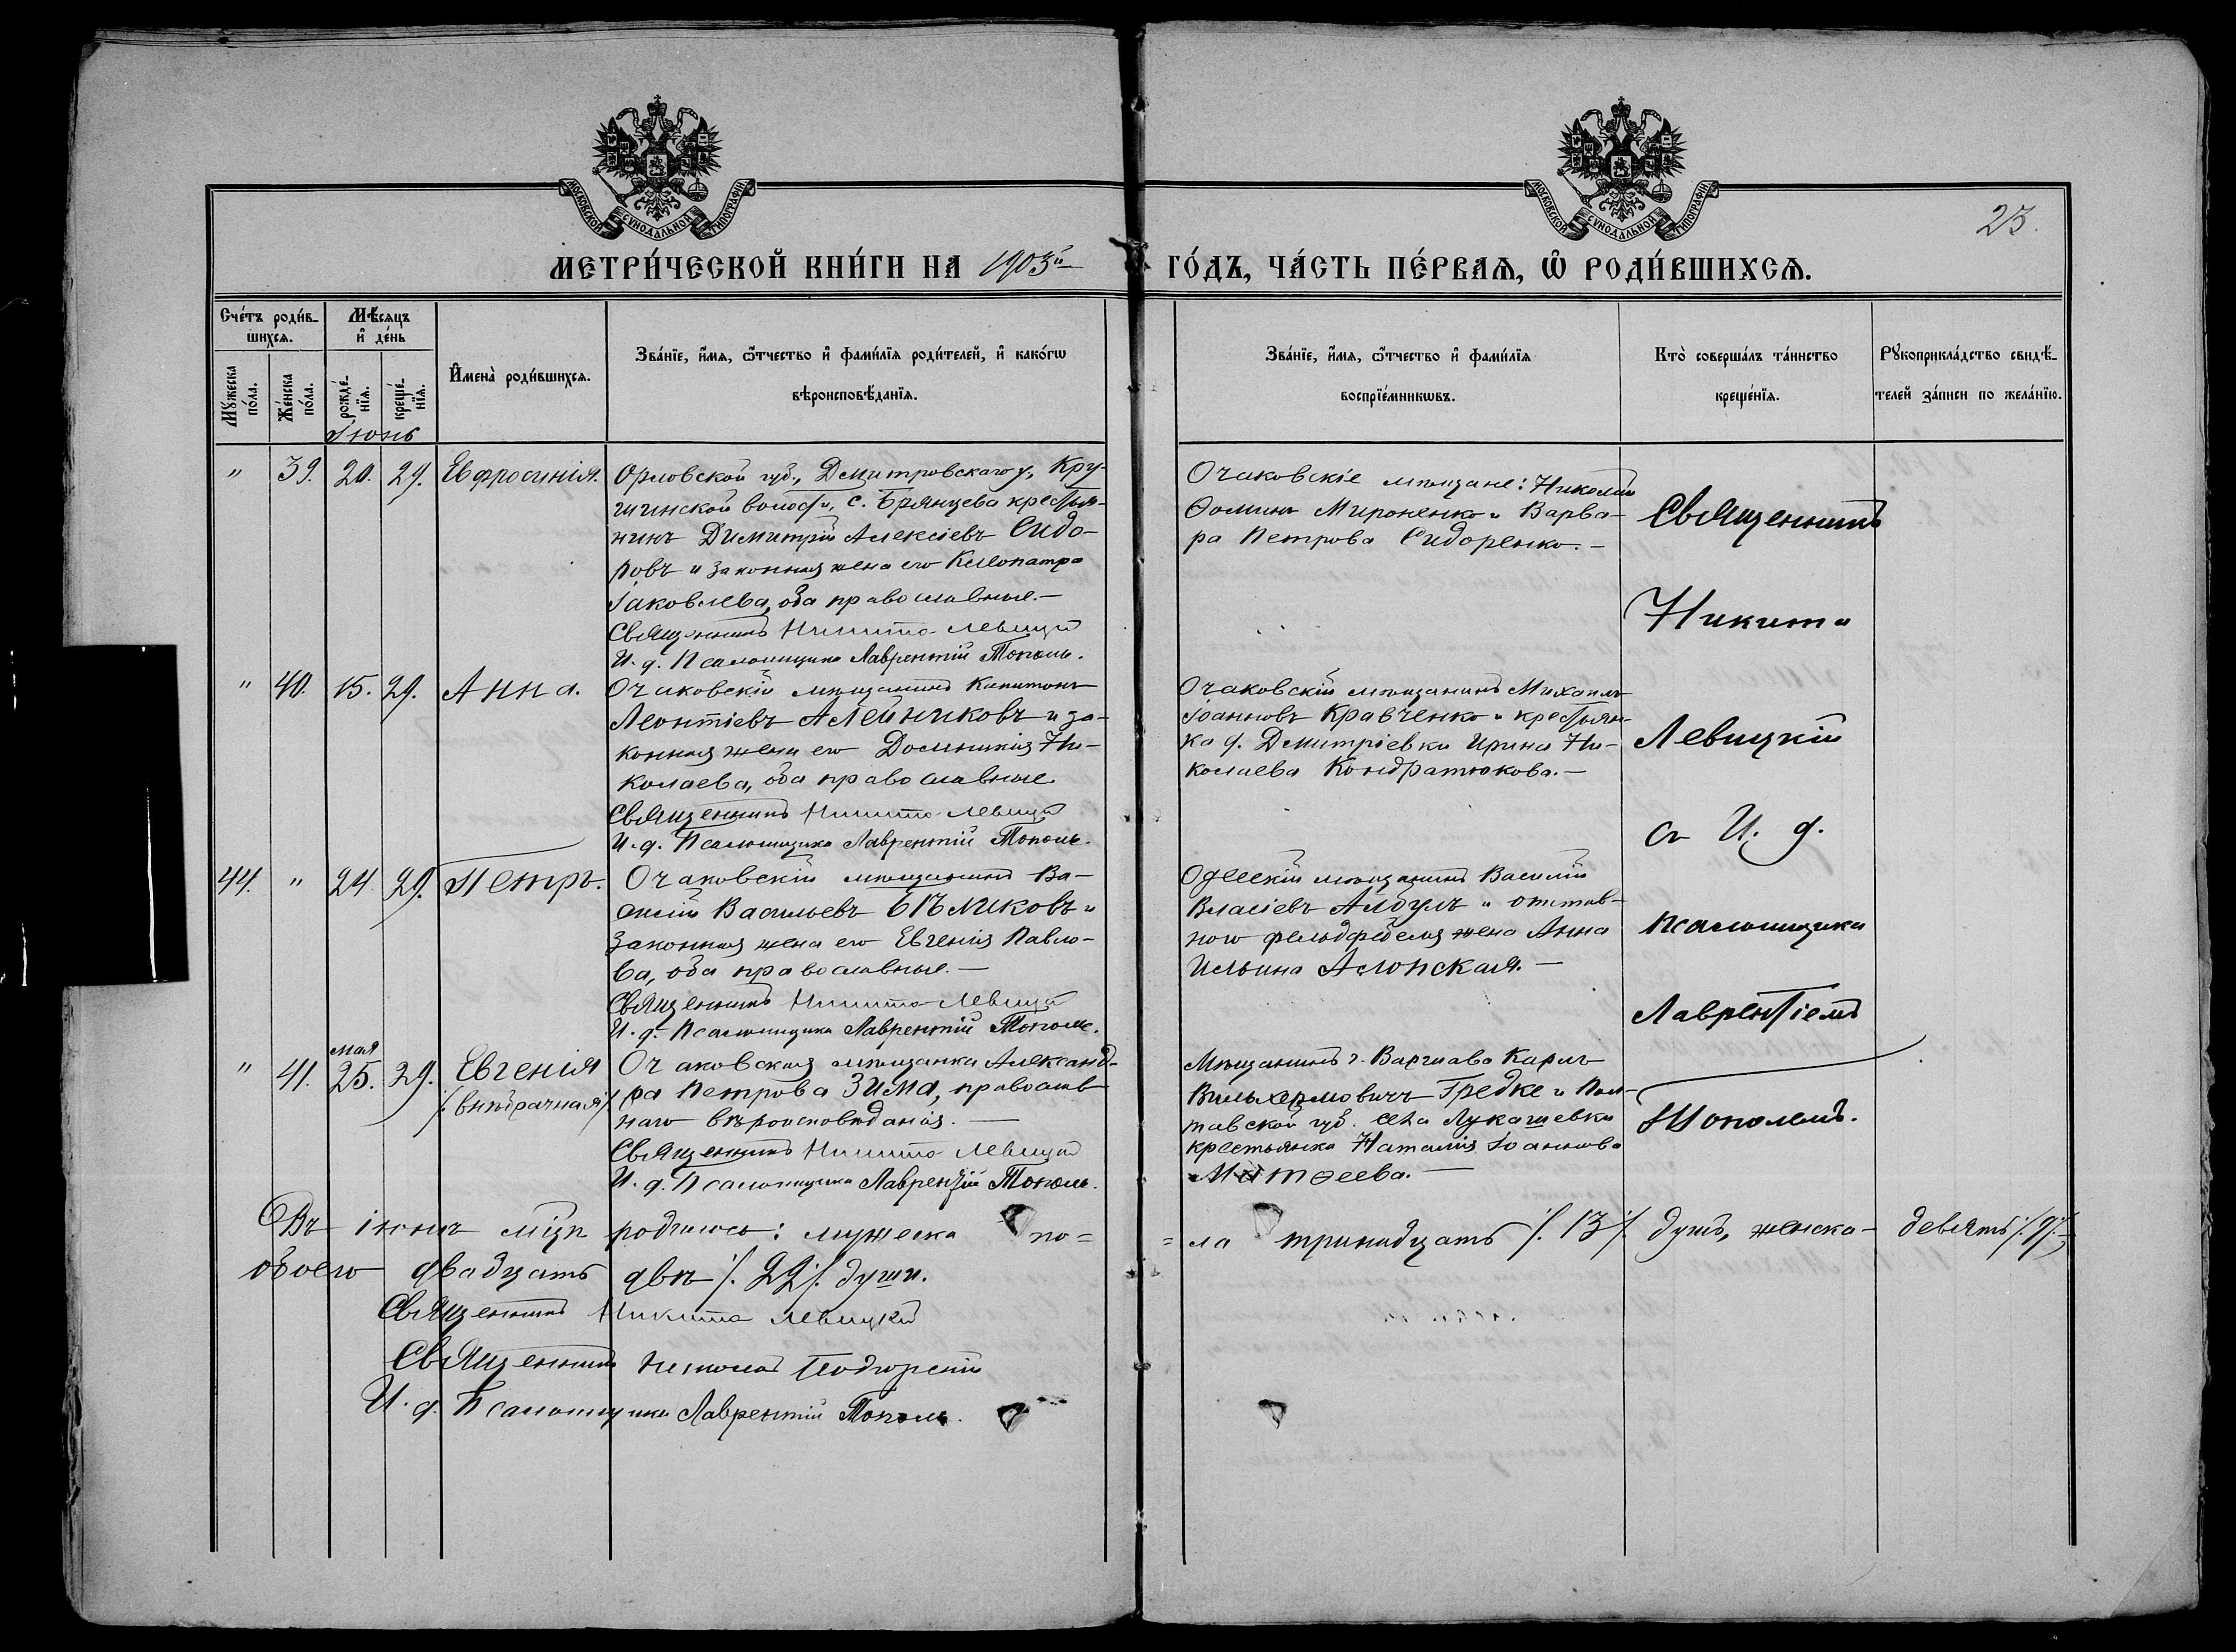 МОСКОВСКОЙ СУНОДАЛЬНОЙ ТИПОГРАФІИ
МОСКОВСКОЙ СУНОДАЛЬНОЙ ТИПОГРАФІИ
23.
МЕТРИ́ЧЕСКОЙ КНИ́ГИ НА 1903й ГО́ДЪ, ЧА́СТЬ ПЕ́РВАѦ, Ѡ РОДИ́ВШИХСѦ.
Сче́тъ роди́в-
шихсѧ.
Мѣ́сѧцъ
и҆ де́нь
Му́жеска по́ла.
Же́нска по́ла.
рожде́-нїѧ.
креще́-нїѧ.
И҆мена̀ роди́вшихсѧ.
Зва́нїе, и҆́мѧ, ѻ҆́тчество и҆ фами́лїѧ роди́телей, и҆ како́гѡ
вѣроисповѣ́данїѧ.
Зва́нїе, и҆́мѧ, ѻ҆́тчество и҆ фами́лїѧ
воспрїе́мникѡвъ.
Кто̀ соверша́лъ та́инство
креще́нїѧ.
Рꙋкоприкла́дство свидѣ́-
телей за́писи по жела́нїю.
Іюнь
" 39. 20. 29. Евфросинія.
Орловской губ., Дмитровскаго у., Кру-
шинской волости, с. Брянцева крестья-
нинъ Димитрій Алексіевъ Сидо-
ровъ и законная жена его Клеопатра
Іаковлева, оба православные.—
Священникъ Никита Левицкій
И. д. Псаломщика Лаврентій Тополь.
Очаковскіе мѣщане: Николай
Ѳоминъ Мироненко и Варва-
ра Петрова Сидоренко.—
" 40. 15. 29. Анна.
Очаковскій мѣщанинъ Капитонъ
Леонтіевъ Алейниковъ и за-
конная жена его Домникія Ни-
колаева, оба православные.
Священникъ Никита Левицкій
И. д. Псаломщика Лаврентій Тополь.
Очаковскій мѣщанинъ Михаилъ
Іоанновъ Кравченко и крестьян-
ка д. Дмитріевки Ирина Ни-
колаева Кондратюкова.—
44. " 24. 29. Петръ.
Очаковскій мѣщанинъ Ва-
силій Васильевъ Бѣликовъ и
законная жена его Евгенія Павло-
ва, оба православные.—
Священникъ Никита Левицкій
И. д. Псаломщика Лаврентій Тополь.
Одесскій мѣщанинъ Василій
Власіевъ и отстав-
ного фельдфебеля жена Анна
Ильина
" 41. мая 25. 29. Евгенія
/внѣбрачная/
Очаковская мѣщанка Александ-
ра Петрова Зима, православ-
наго вѣроисповѣданія.—
Священникъ Никита Левицкій
И. д. Псаломщика Лаврентій Тополь.
Мѣщанинъ г. Варшава Карлъ
Вильхермовичъ Гредке и Пол-
тавской губ. села Лукашевки
крестьянка Наталія Іоаннова
Матѳеева.—
Священникъ
Никита
Левицкій
съ И. д.
псаломщика
Лаврентіемъ
Тополемъ.
Въ іюнѣ мѣцѣ родилось: мужеска по=
=ла тринадцать /. 13 /. душъ, женска— девять /. 9 /.—,
обоего двадцать двѣ /. 22 /. души.
Священникъ Никита Левицкій
Священникъ Николай
И. д. Псаломщика Лаврентій Тополь.